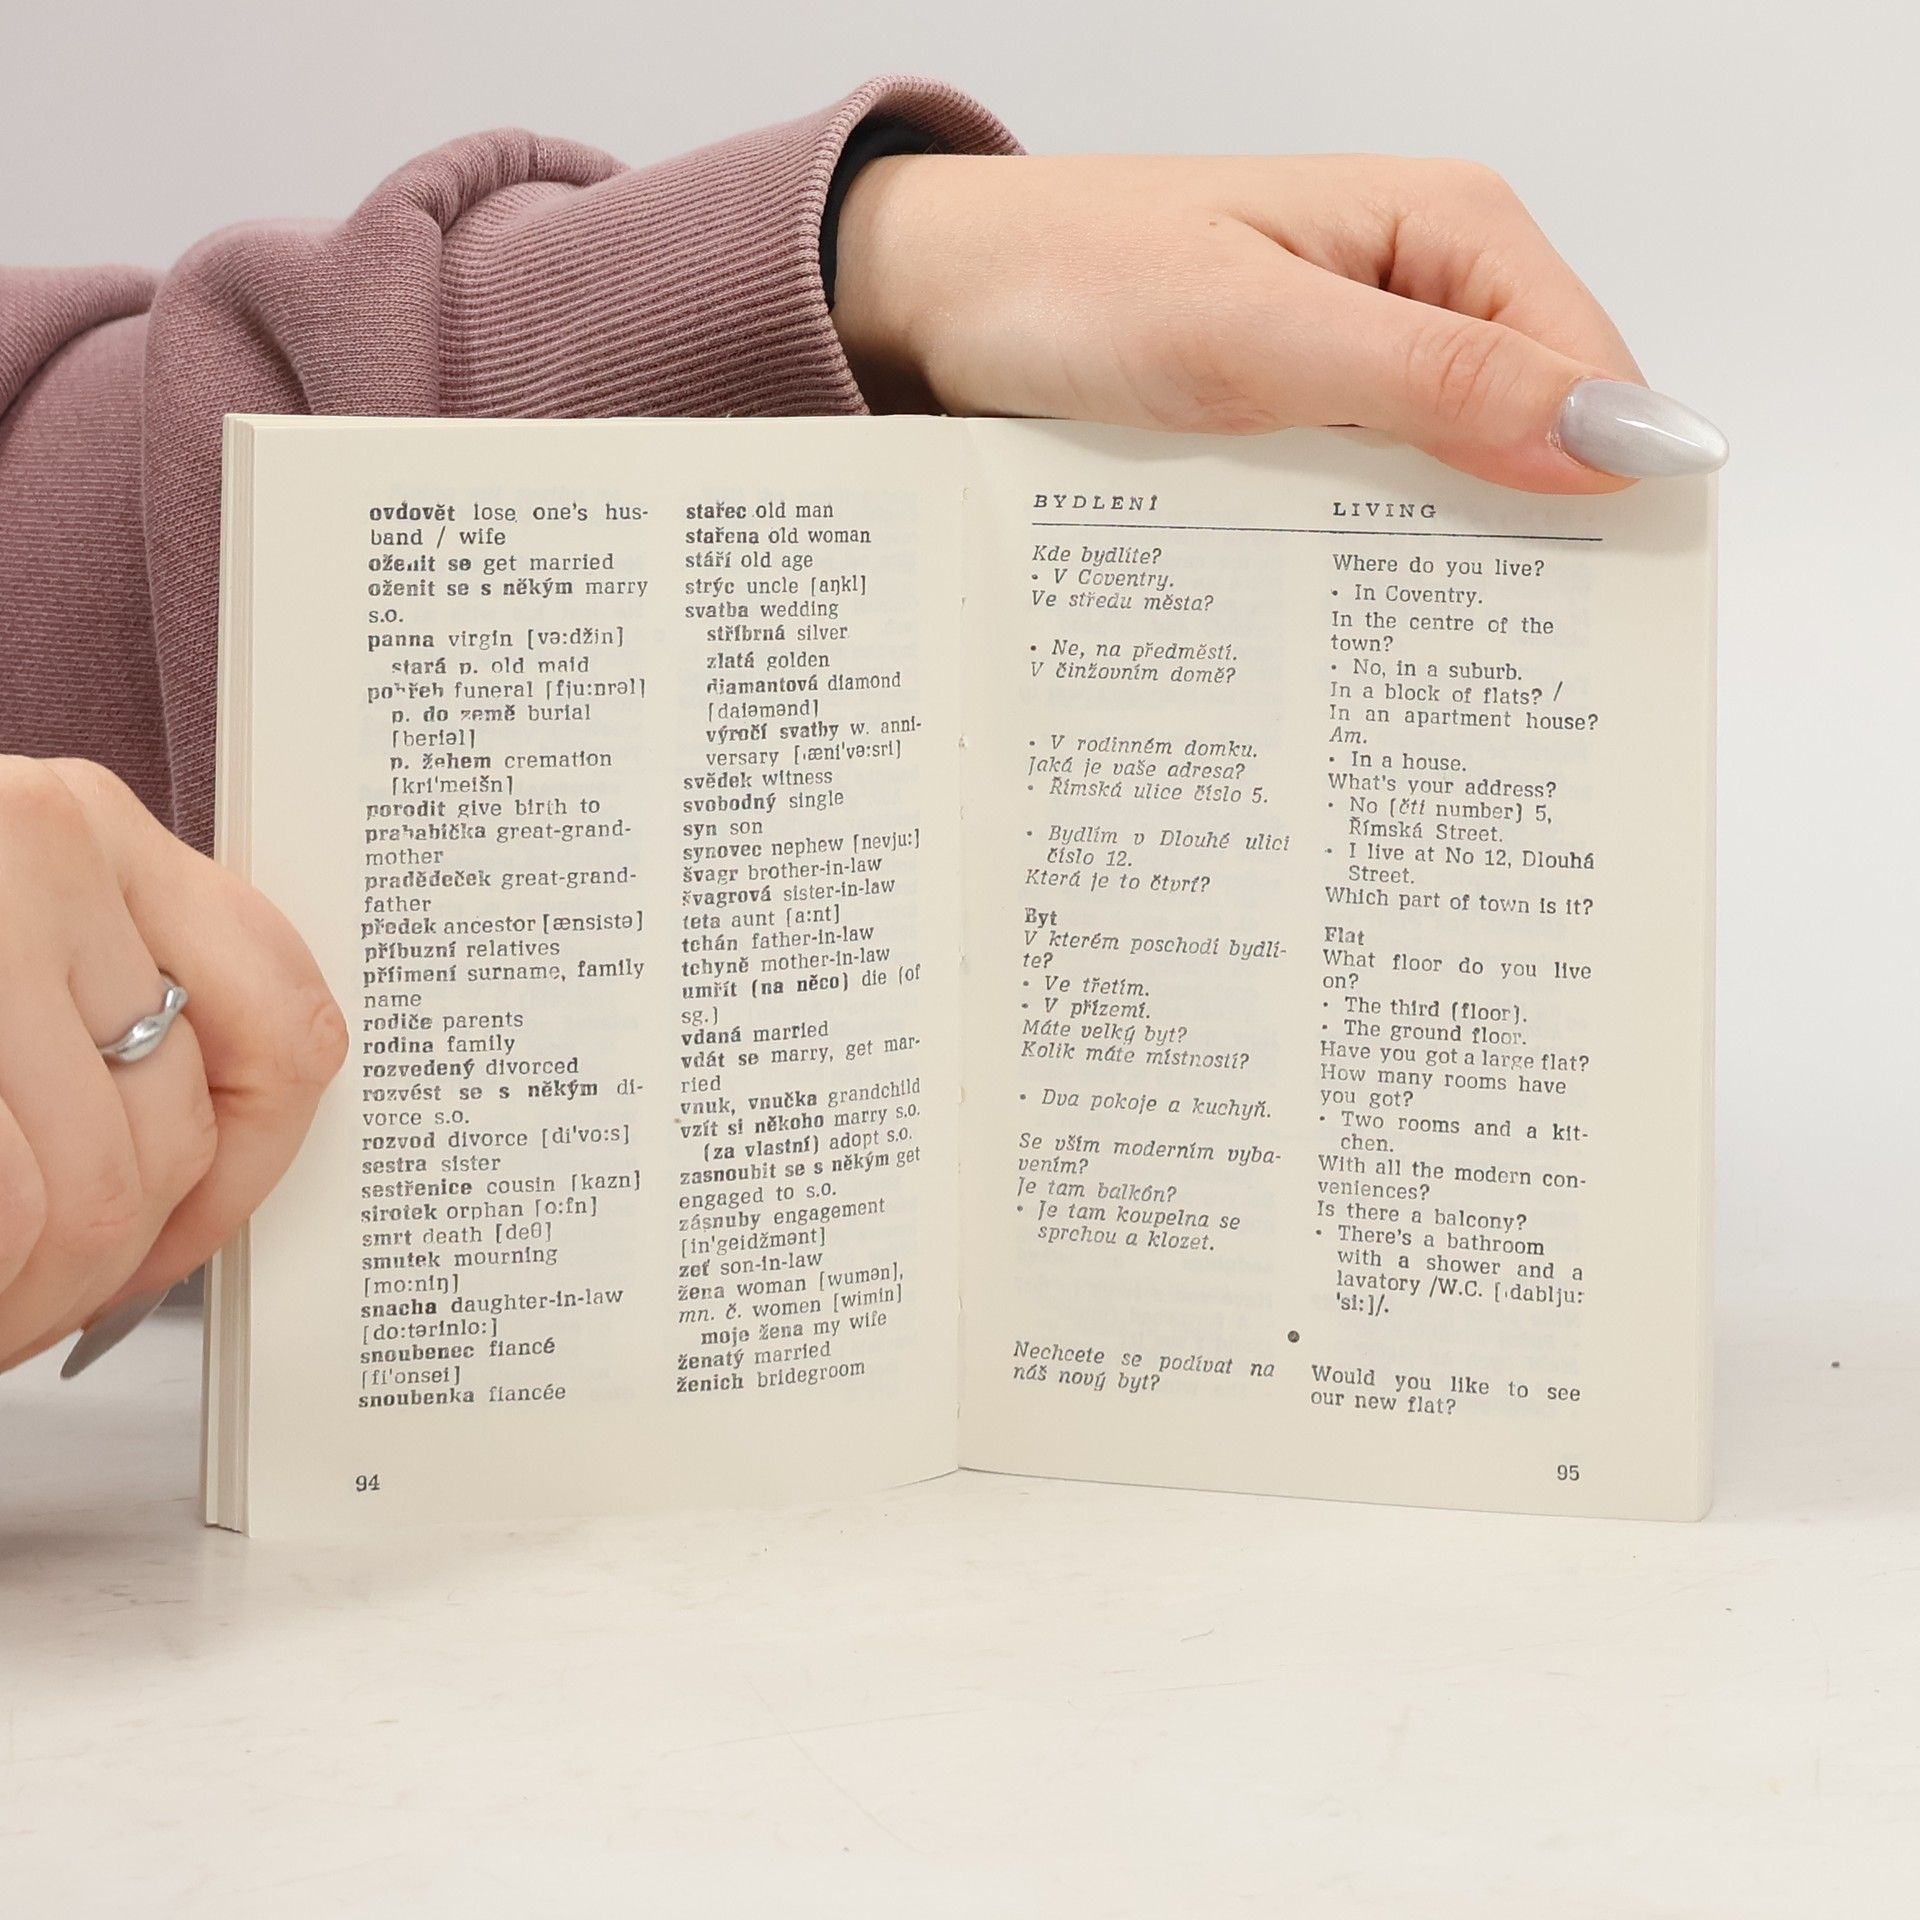 ovdovět lose one's hus-
band / wife
oženit se get married
oženit se s někým marry
s.o.
panna virgin [və:džin]
stará p. old maid
pohřeb funeral [fju:nrəl]
p. do země burial
[beriəl]
p. žehem cremation
[kri'meišn]
porodit give birth to
prababička great-grand-
mother
pradědeček great-grand-
father
předek ancestor [ænsistə]
příbuzní relatives
příjmení surname, family
name
rodiče parents
rodina family
rozvedený divorced
rozvést se s někým di-
vorce s.o.
rozvod divorce [di'vo:s]
sestra sister
sestřenice cousin [kazn]
sirotek orphan [o:fn]
smrt death [deθ]
smutek mourning
[mo:niŋ]
snacha daughter-in-law
[do:tərinlo:]
snoubenec fiancé
[fi'onsei]
snoubenka fiancée
94
stařec old man
stařena old woman
stáří old age
strýc uncle [aŋkl]
svatba wedding
stříbrná silver
zlatá golden
diamantová diamond
[daiəmənd]
výročí svatby w. anni-
versary [ˌæni'və:sri]
svědek witness
svobodný single
syn son
synovec nephew [nevju:]
švagr brother-in-law
švagrová sister-in-law
teta aunt [a:nt]
tchán father-in-law
tchyně mother-in-law
umřít (na něco) die (of
sg.)
vdaná married
vdát se marry, get mar-
ried
vnuk, vnučka grandchild
vzít si někoho marry s.o.
(za vlastní) adopt s.o.
zasnoubit se s někým get
engaged to s.o.
zásnuby engagement
[in'geidžmənt]
zeť son-in-law
žena woman [wumən],
mn. č. women [wimin]
moje žena my wife
ženatý married
ženich bridegroom
BYDLENÍ
Kde bydlíte?
• V Coventry.
Ve středu města?
• Ne, na předměstí.
V činžovním domě?
• V rodinném domku.
Jaká je vaše adresa?
• Římská ulice číslo 5.
• Bydlím v Dlouhé ulici
číslo 12.
Která je to čtvrť?
Byt
V kterém poschodí bydlí-
te?
• Ve třetím.
• V přízemí.
Máte velký byt?
Kolik máte místností?
• Dva pokoje a kuchyň.
Se vším moderním vyba-
vením?
Je tam balkón?
• Je tam koupelna se
sprchou a klozet.
Nechcete se podívat na
náš nový byt?
LIVING
Where do you live?
• In Coventry.
In the centre of the
town?
• No, in a suburb.
In a block of flats? /
In an apartment house?
Am.
• In a house.
What's your address?
• No [čti number] 5,
Římská Street.
• I live at No 12, Dlouhá
Street.
Which part of town is it?
Flat
What floor do you live
on?
• The third (floor).
• The ground floor.
Have you got a large flat?
How many rooms have
you got?
• Two rooms and a kit-
chen.
With all the modern con-
veniences?
Is there a balcony?
• There's a bathroom
with a shower and a
lavatory /W.C. [ˌdablju:
'si:]/.
Would you like to see
our new flat?
95